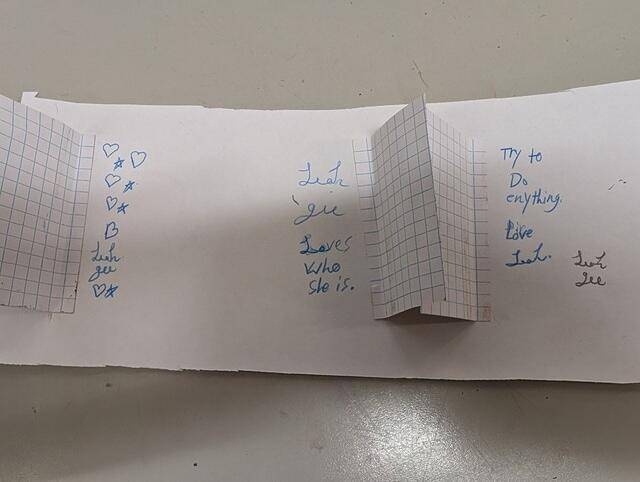 Leah
gee
Leah
gee
Loves
who
she is.
Try to
Do
enything.
Love
Leah.
Leah
gee